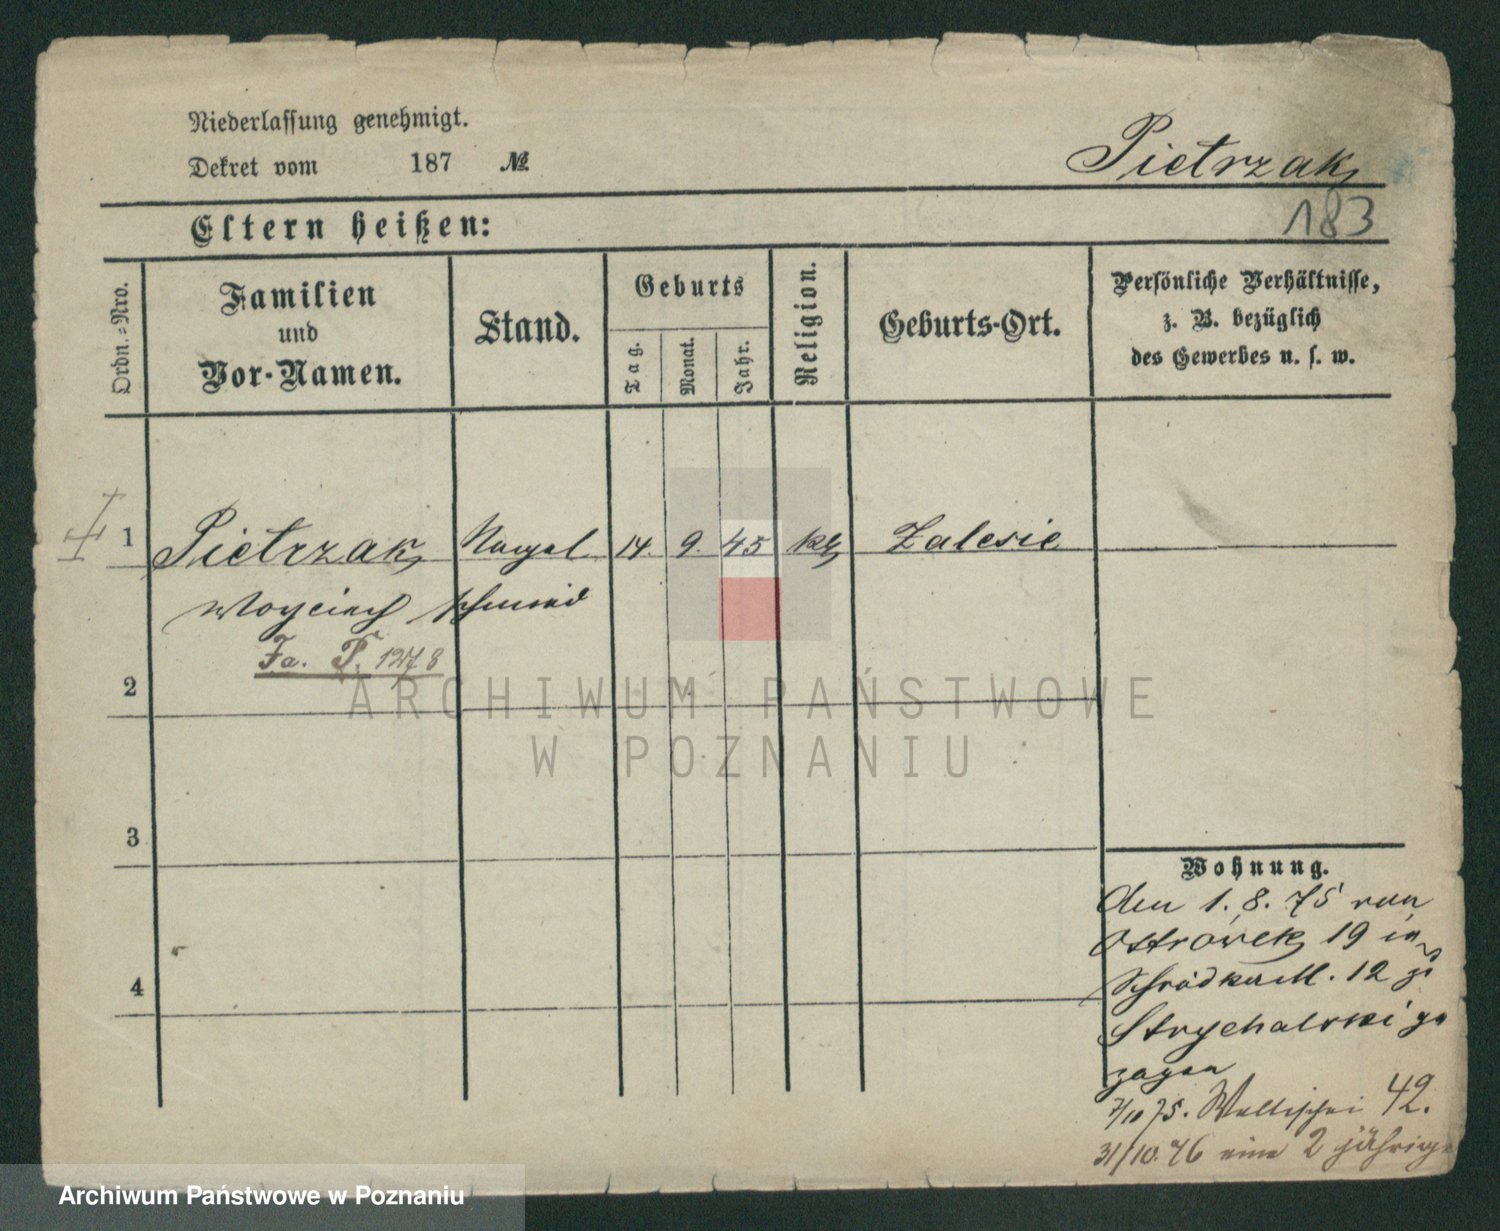 Niederlassung genehmigt.
Dekret vom 187 №
Pietrzak
183
Eltern heißen:
Ordn.-Nro.
Familien und Vor-Namen.
Stand.
Geburts
Tag.
Monat.
Jahr.
Religion.
Geburts-Ort.
Persönliche Verhältnisse,
z. B. bezüglich
des Gewerbes u. s. w.
1 Pietrzak Nagel 14. 9. 45 kth Zalesie
Woyciech schmied
Fa. P. 1278
2
ARCHIWUM PAŃSTWOWE
W POZNANIU
3
4
Wohnung.
den 1. 8. 75 von
Ostrowek 19 in
Schrodkam. 12 zu
Strychalski ge
zogen
7/10 75. Wallischei 42.
31/10. 76 eine 2 jährige
Archiwum Państwowe w Poznaniu